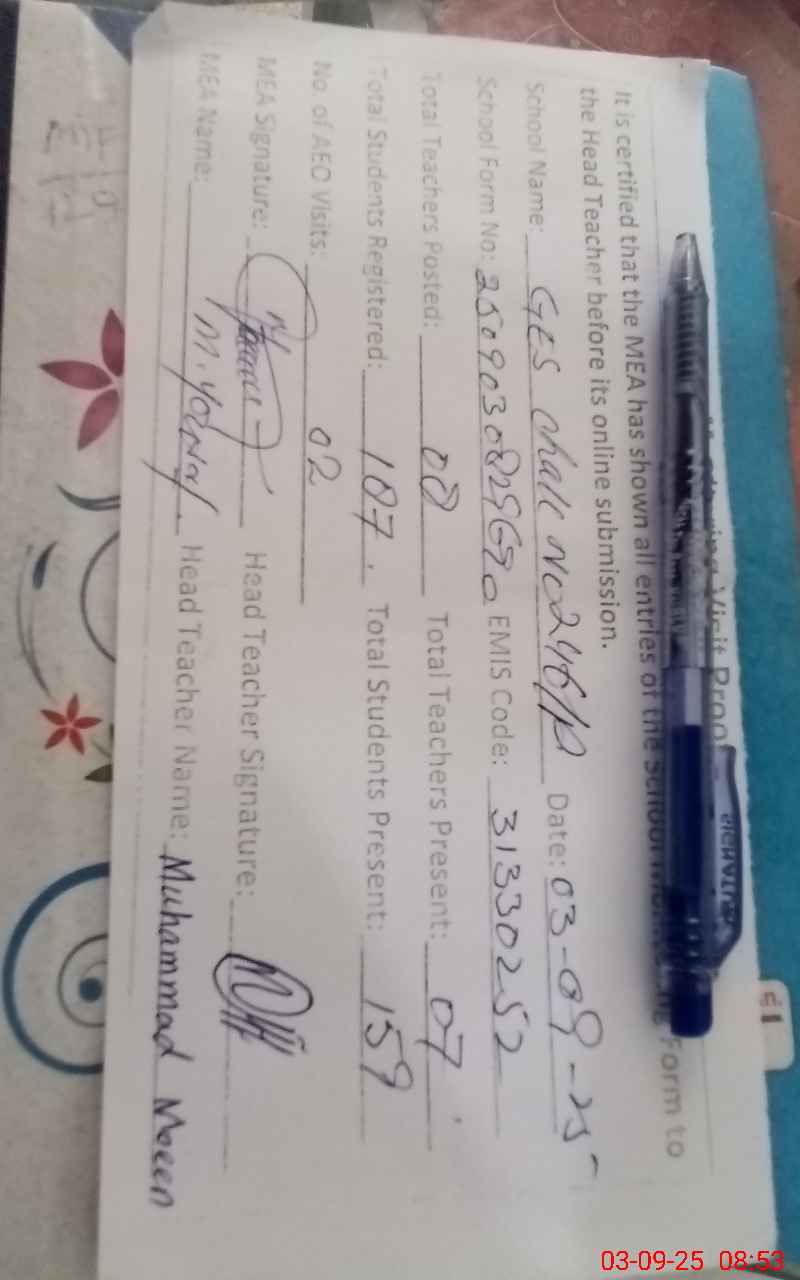 Visit Proo
It is certified that the MEA has shown all entries of the School Form to
the Head Teacher before its online submission.
School Name: GES Chak No 246/P Date: 03-09-25
School Form No: EMIS Code: 31330252
Total Teachers Posted: 08 Total Teachers Present: 07
Total Students Registered: 187 Total Students Present: 159
No. of AEO Visits: 02
MEA Signature: Head Teacher Signature:
MEA Name: M. Head Teacher Name: Muhammad Moeen
03-09-25 08:53